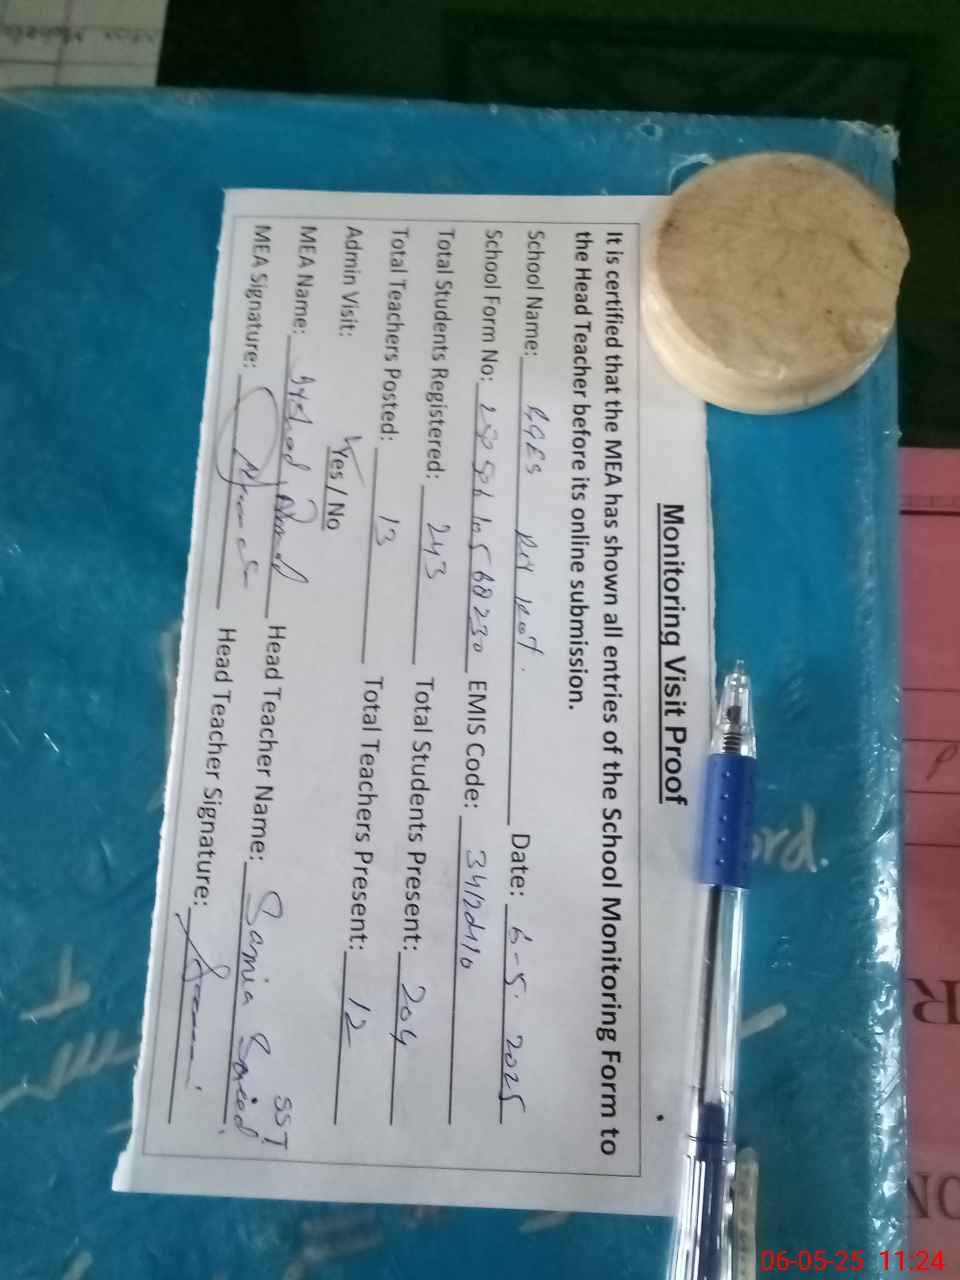 Monitoring Visit Proof
It is certified that the MEA has shown all entries of the School Monitoring Form to
the Head Teacher before its online submission.
School Name: Kot. Date: 6-5-2025
School Form No: EMIS Code:
Total Students Registered: 243 Total Students Present: 204
Total Teachers Posted: 13 Total Teachers Present: 12
Admin Visit: Yes / No
SST
MEA Name: Head Teacher Name: Samia Saeed
MEA Signature: Head Teacher Signature:
ord.
06-05-25 11:24